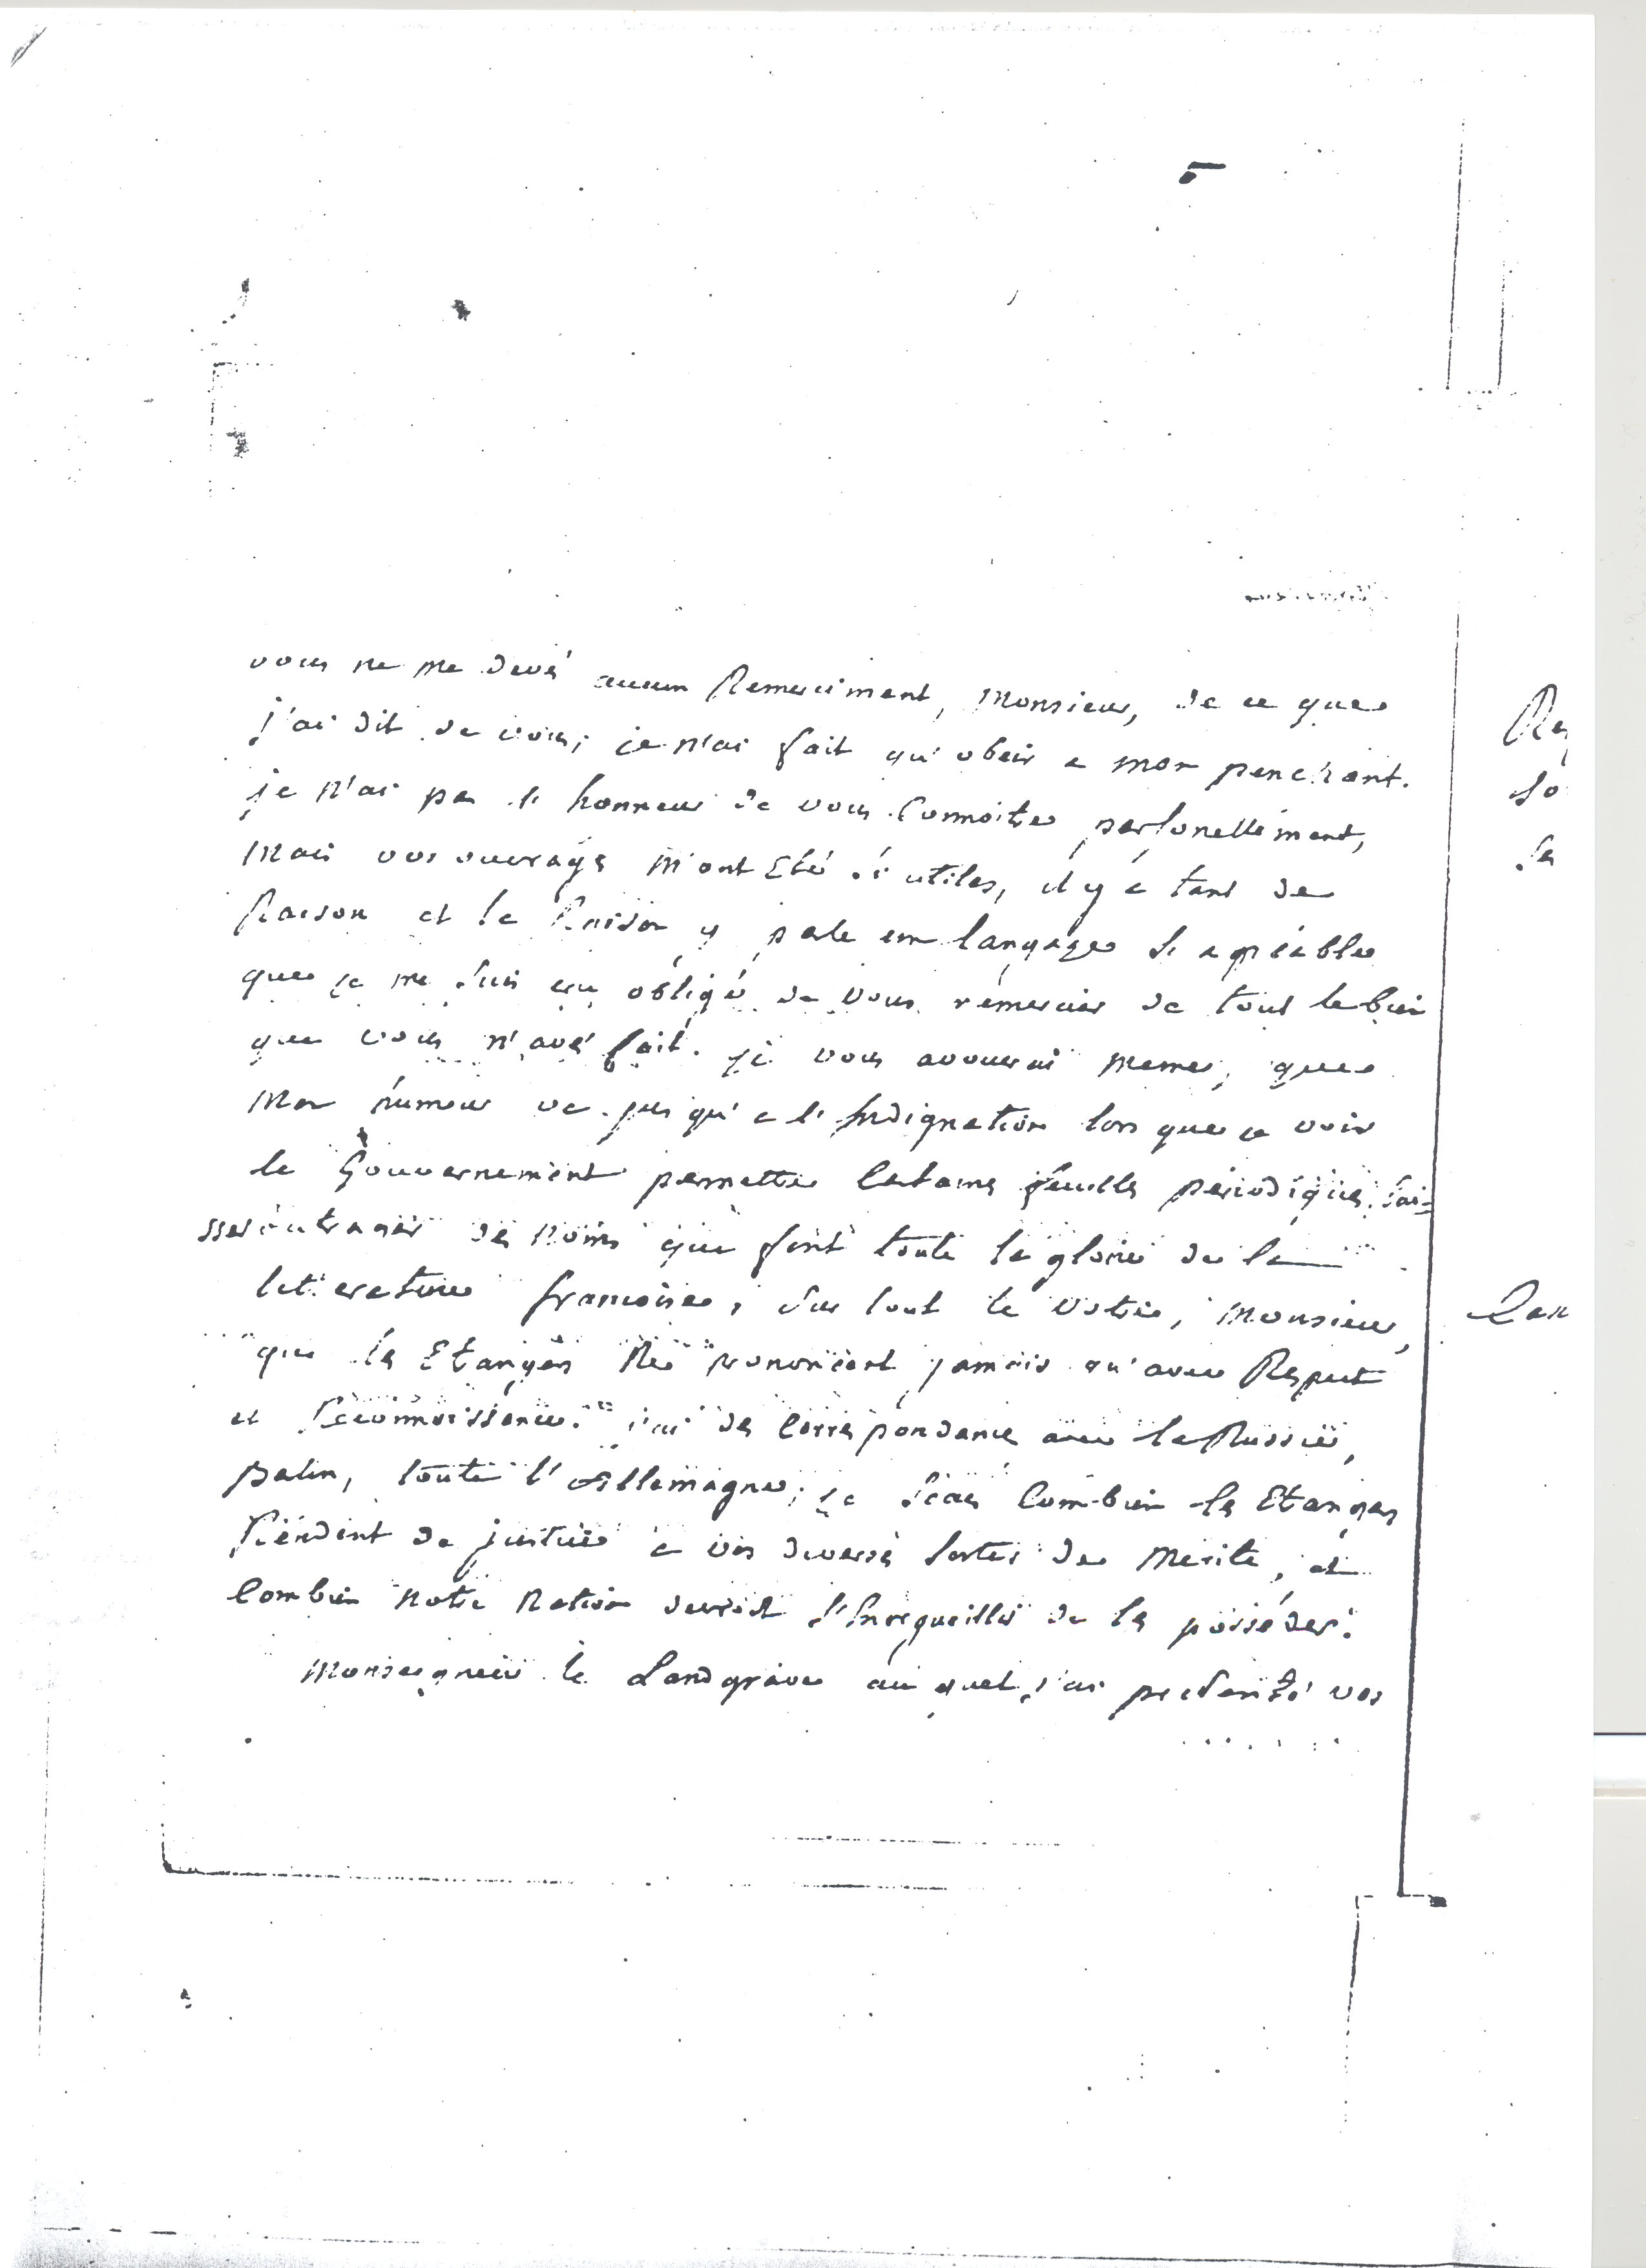 vous ne me devé aucun Remerciment, Monsieur, de ce que
j'ai dit de vous; je n'ai fait qu'obeir a mon penchant.
je n'ai pas l'honneur de vous Connoitre personellement,
Mais vos ouvrages m'ont Eté si utiles, il y a tant de
Raison et la Raison y parle un langage si agréable
que je me suis cru obligé de vous remercier de tout le bien
que vous m'avé fait. je vous avouerai meme, que
Mon humeur va jusqu'a l'Indignation lors que je vois
le Gouvernement permettre Certaines feuilles périodiques, Lai-
sser outrager des Noms qui font toute la gloire de la
litterature françoise, sur tout le votre, Monsieur,
que les Etangers Ne prononcent jamais qu'avec Respect
et Reconnoissance. j'ai des Correspondances avec la Russie,
Berlin, toute l'Allemagne; je scais Combien les Etangers
Rendent de justice a vos diverses sortes de Merite, et
Combien notre Nation devroit s'Enorgueillir de les posséder.
Monseigneur le Landgrave au quel j'ai presenté vos
Re
so
sa
Lan